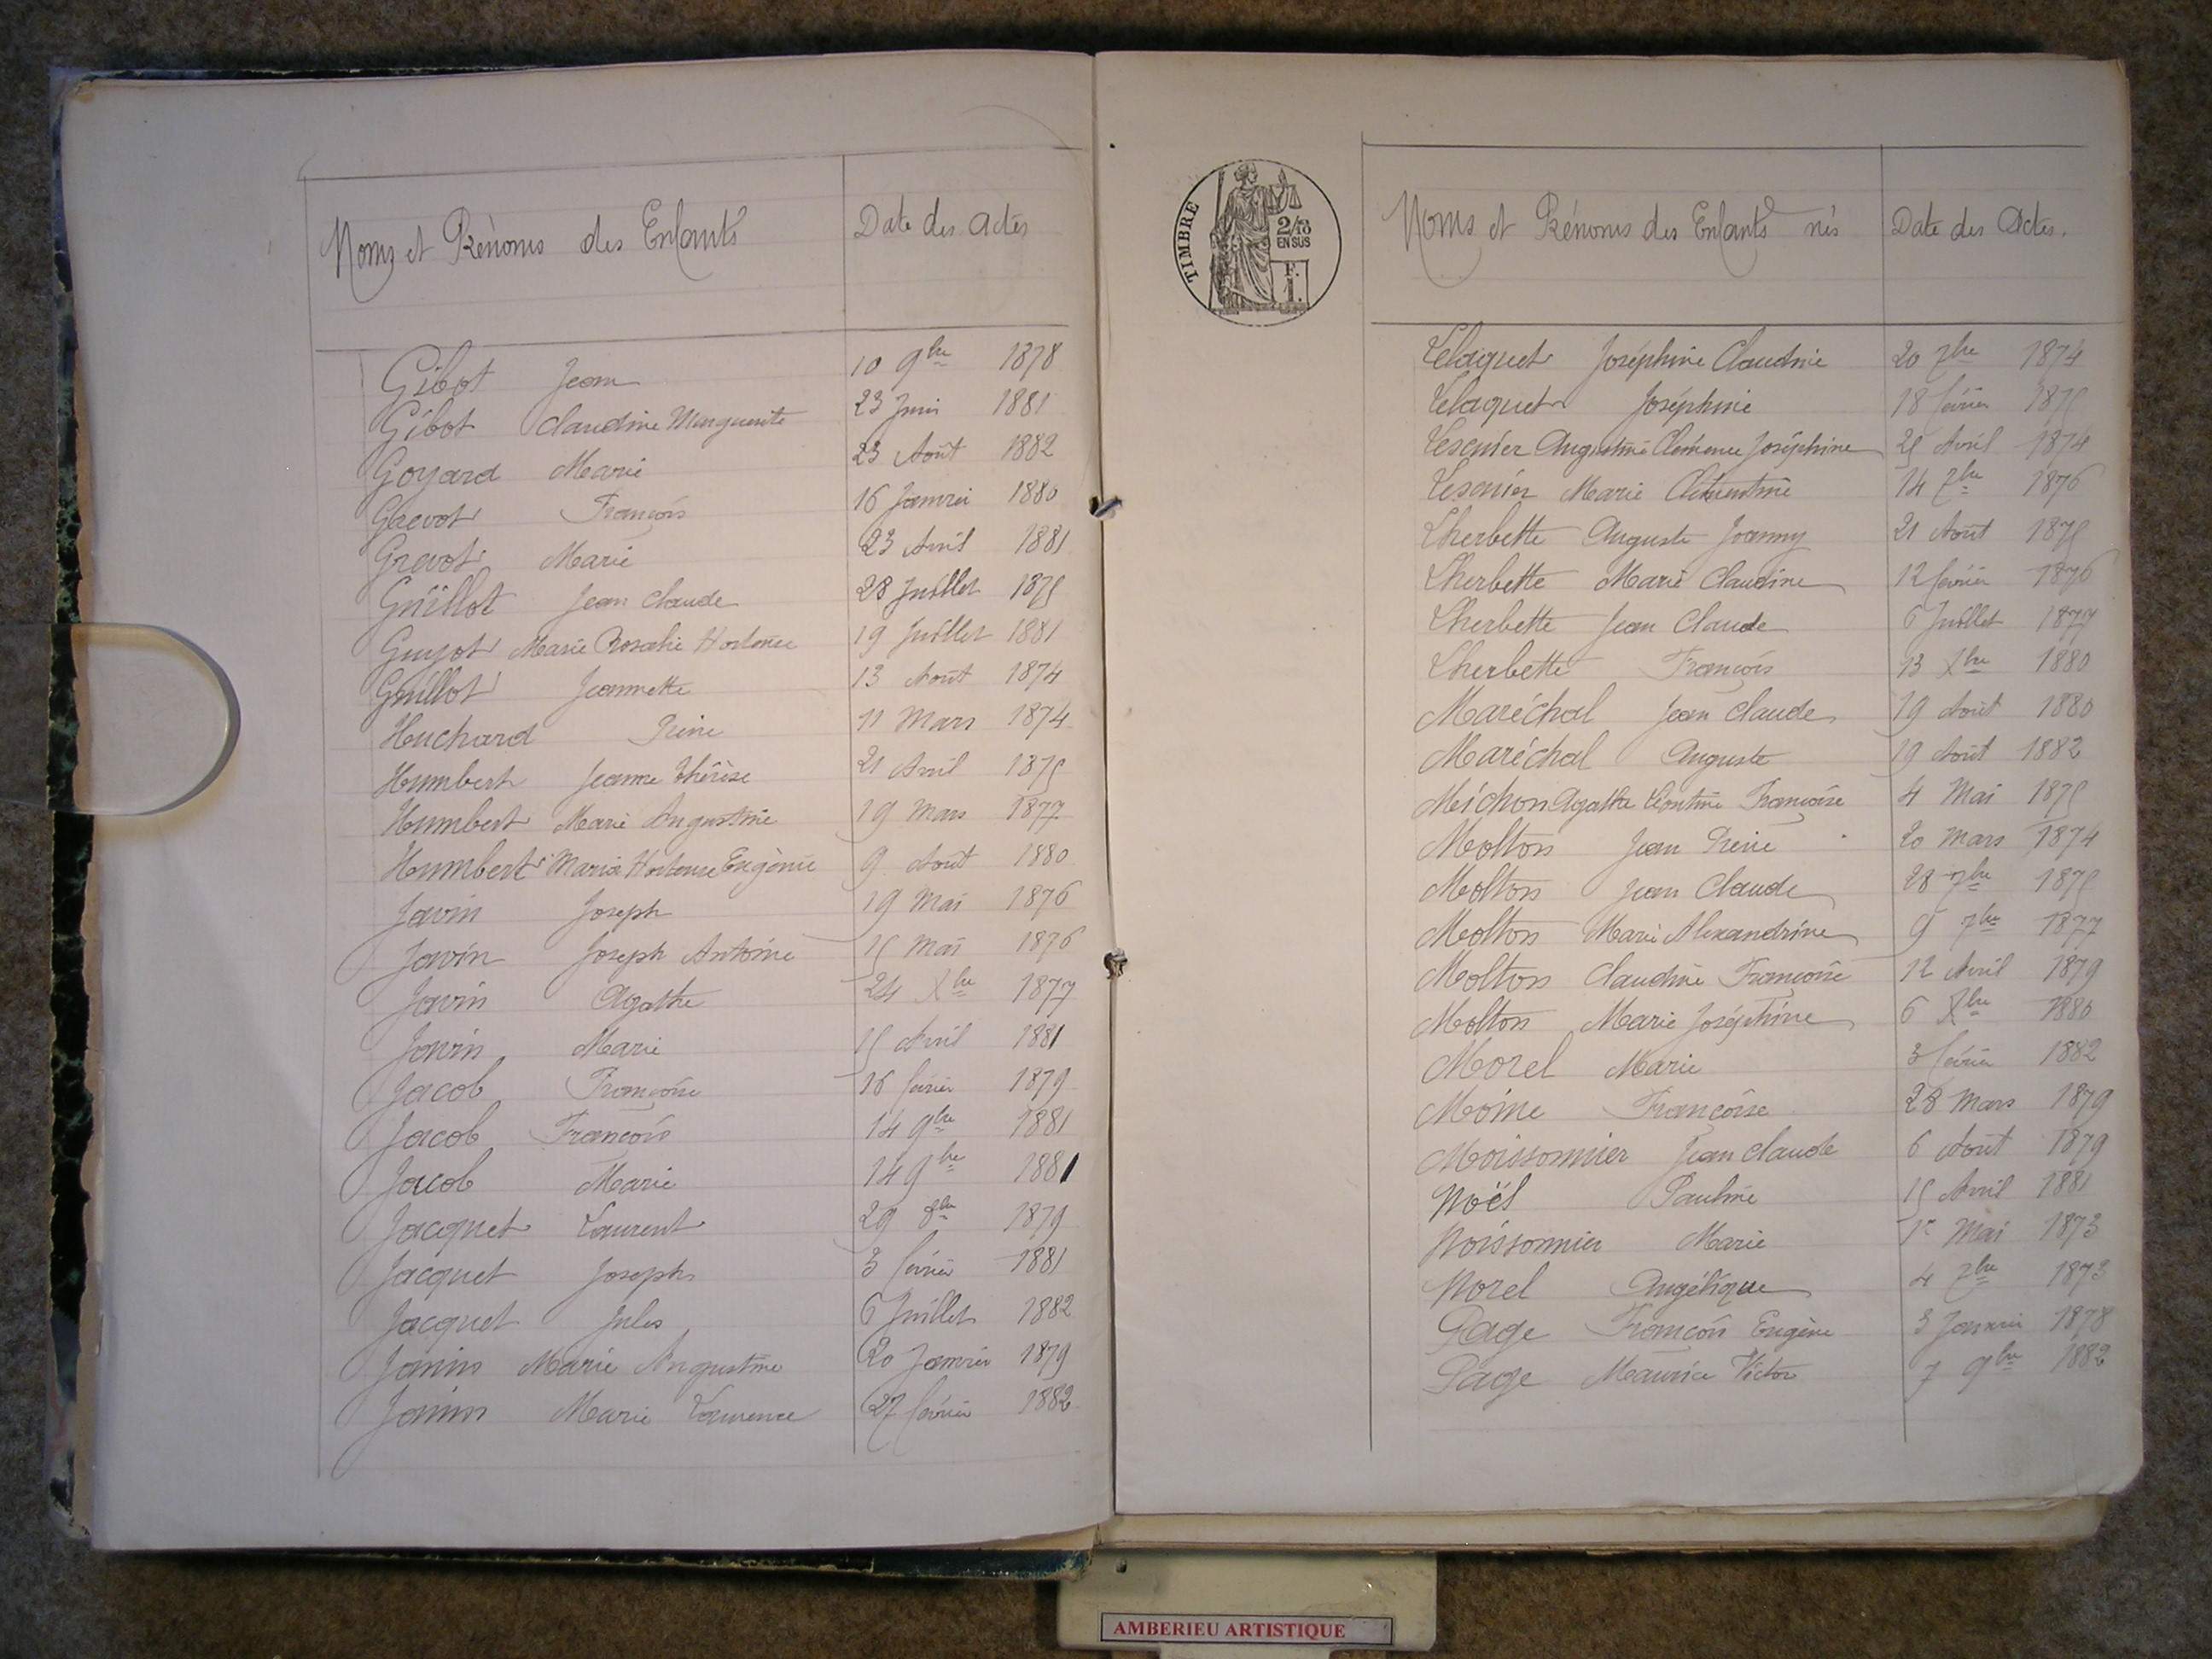 Noms et Prénoms des Enfants Date des actes
Gibot Jean 10 9bre 1878
Gibot Claudine Marguerite 23 Juin 1881
Goyard Marie 23 Août 1882
Grevot François 16 Janvier 1880
Grevot Marie 23 Avril 1881
Guillot Jean Claude 28 Juillet 1875
Guyot Marie Rosalie Hortense 19 Juillet 1881
Guillot Jeannette 13 Août 1874
Huchard Pierre 11 Mars 1874
Humbert Jeanne Thérèse 21 Avril 1875
Humbert Marie Augustine 19 Mars 1877
Humbert Maria Hortense Eugènie 9 Août 1880
Javin Joseph 19 Mai 1876
Javin Joseph Antoine 15 Mai 1876
Javin Agathe 24 Xbre 1877
Javin Marie 15 Avril 1881
Jacob Françoise 16 février 1879
Jacob François 14 9bre 1881
Jacob Marie 14 9bre 1881
Jacquet Laurent 29 8bre 1879
Jacquet Joseph 3 février 1881
Jacquet Jules 6 Juillet 1882
Janin Marie Augustine 20 Janvier 1879
Janin Marie Laurence 27 février 1882
TIMBRE
2/10
EN SUS
F.
1.
Noms et Prénoms des Enfants nés Date des Actes.
Lelaquet Joséphine Claudine 20 7bre 1874
Lelaquet Joséphine 18 février 1875
Lescuier Augustine Clémence Joséphine 25 Avril 1874
Lescuier Marie Clémentine 14 7bre 1876
Lherbette Auguste Joanny 21 Août 1875
Lherbette Marie Claudine 12 février 1876
Lherbette Jean Claude 6 Juillet 1877
Lherbette François 13 Xbre 1880
Maréchal Jean Claude 19 Août 1880
Maréchal Auguste 19 Août 1882
Michon Agathe Léontine Françoise 4 Mai 1875
Molton Jean Pierre 20 Mars 1874
Molton Jean Claude 28 7bre 1875
Molton Marie Alexandrine 9 7bre 1877
Molton Claudine Françoise 12 Avril 1879
Molton Marie Joséphine 6 Xbre 1880
Morel Marie 3 février 1882
Moine Françoise 28 Mars 1879
Moissonnier Jean Claude 6 Août 1879
Noël Pauline 15 Avril 1881
Noissonnier Marie 1er Mai 1873
Norel Angélique 4 7bre 1873
Page François Eugène 3 Janvier 1878
Page Maurice Victor 7 9bre 1882
AMBERIEU ARTISTIQUE